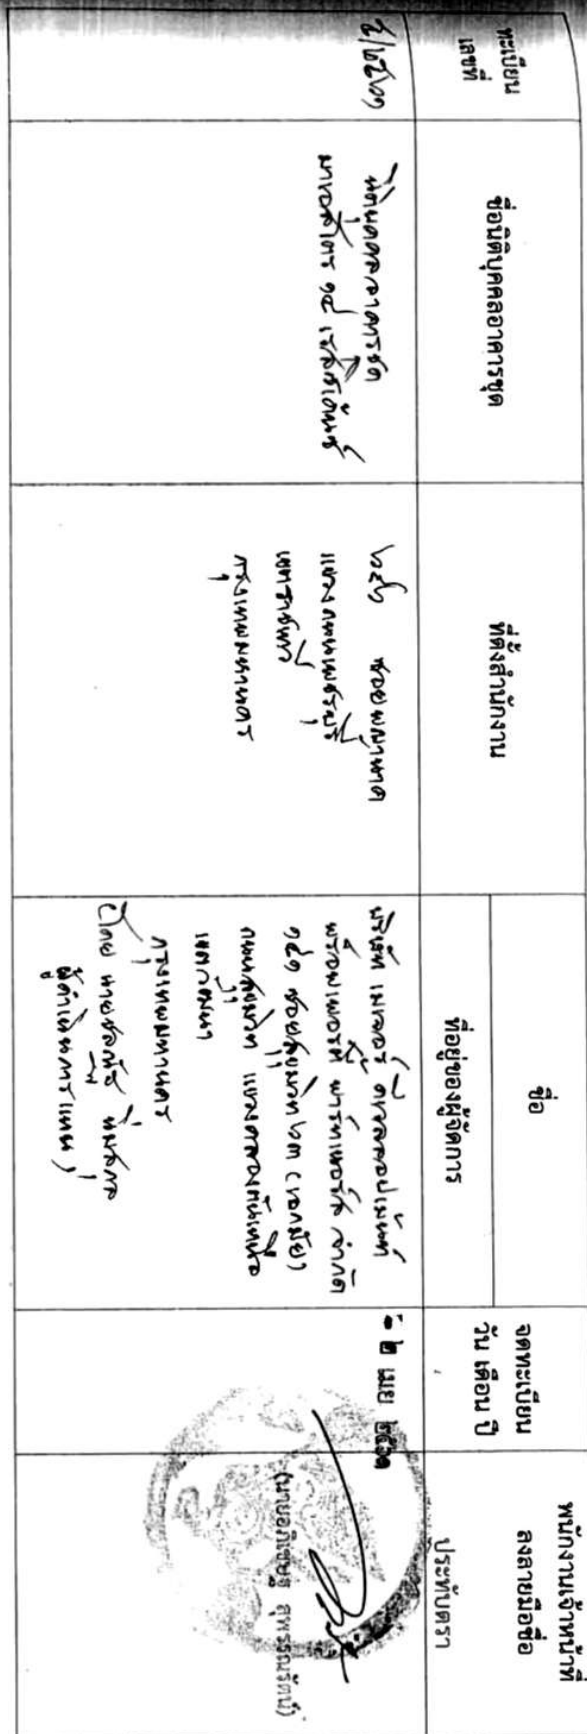 ทะเบียน
เลขที่
ชื่อนิติบุคคลอาคารชุด
ที่ตั้งสำนักงาน
ชื่อ
ที่อยู่ของผู้จัดการ
จดทะเบียน
วัน เดือน ปี
พนักงานเจ้าหน้าที่
ลงลายมือชื่อ
ประทับตรา
นิติบุคคลอาคารชุด
มาเอสโตร ๑๔ เรสซิเด้นซ์
ซอยพญานาค
แขวงถนนเพชรบุรี
เขตราชเทวี
กรุงเทพมหานคร
บริษัท เมเจอร์ ดีเวลลอปเม้นท์
พร็อพเพอร์ตี้ พาร์ทเนอร์ส จำกัด
๑๔๑ ซอยสุขุมวิท ๖๓ (เอกมัย)
ถนนสุขุมวิท แขวงคลองตันเหนือ
เขตวัฒนา
กรุงเทพมหานคร
ผู้ดำเนินการแทน)
๒ เมย ๒๕๖๑